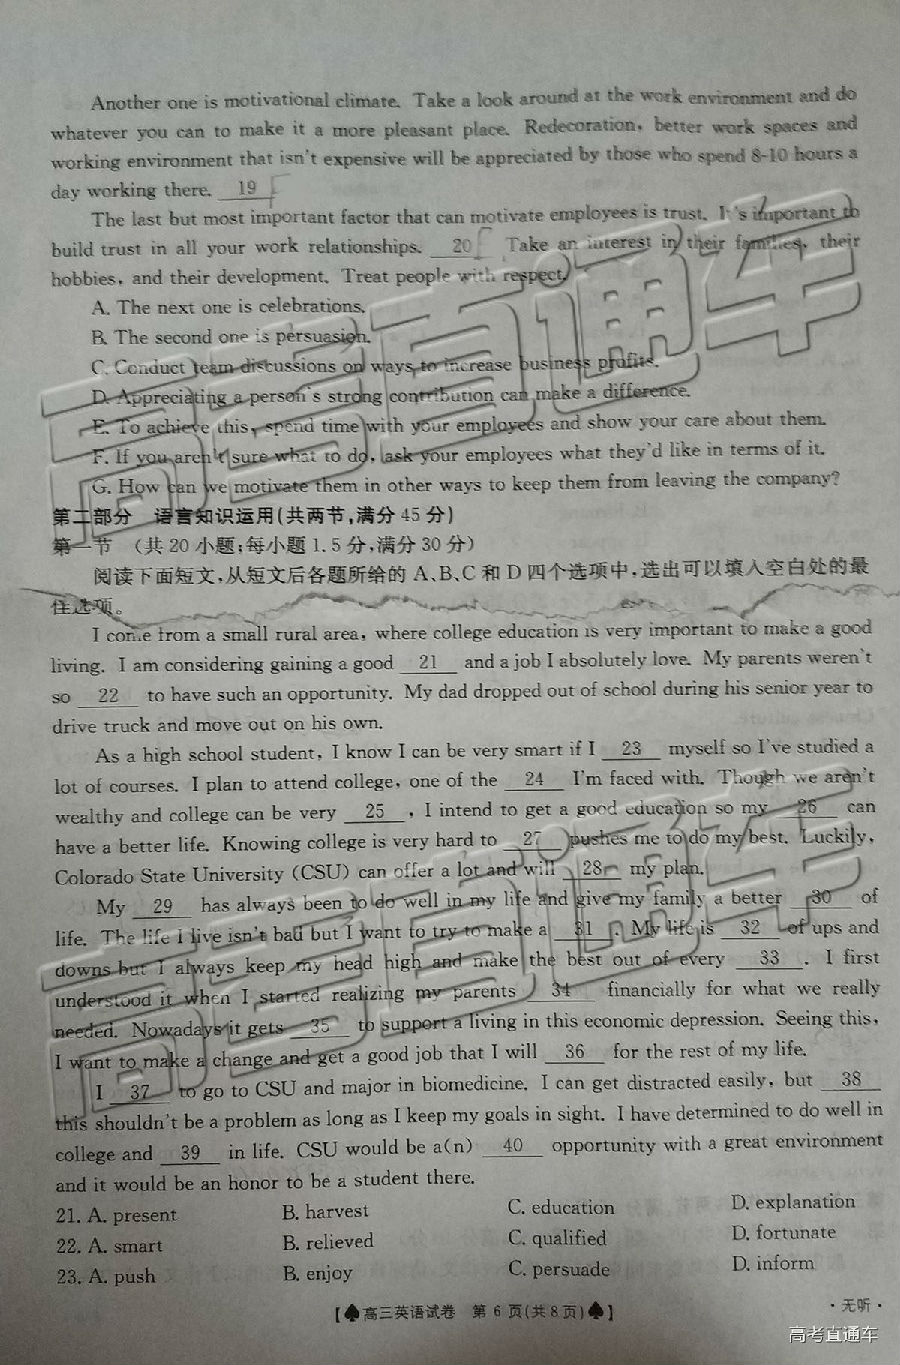 Another one is motivational climate. Take a look around at the work environment and do
whatever you can to make it a more pleasant place. Redecoration, better work spaces and
working environment that isn't expensive will be appreciated by those who spend 8-10 hours a
day working there. 19
The last but most important factor that can motivate employees is trust. It's important to
build trust in all your work relationships. 20 Take an interest in their families, their
hobbies, and their development. Treat people with respect.
A. The next one is celebrations.
B. The second one is persuasion.
C. Conduct team discussions on ways to increase business profits.
D. Appreciating a person's strong contribution can make a difference.
E. To achieve this, spend time with your employees and show your care about them.
F. If you aren't sure what to do, ask your employees what they'd like in terms of it.
G. How can we motivate them in other ways to keep them from leaving the company?
第二部分 语言知识运用(共两节,满分45分)
第一节 (共20小题;每小题1.5分,满分30分)
阅读下面短文,从短文后各题所给的A、B、C和D四个选项中,选出可以填入空白处的最
佳选项。
I come from a small rural area, where college education is very important to make a good
living. I am considering gaining a good 21 and a job I absolutely love. My parents weren't
so 22 to have such an opportunity. My dad dropped out of school during his senior year to
drive truck and move out on his own.
As a high school student, I know I can be very smart if I 23 myself so I've studied a
lot of courses. I plan to attend college, one of the 24 I'm faced with. Though we aren't
wealthy and college can be very 25 , I intend to get a good education so my 26 can
have a better life. Knowing college is very hard to 27 pushes me to do my best. Luckily,
Colorado State University (CSU) can offer a lot and will 28 my plan.
My 29 has always been to do well in my life and give my family a better 30 of
life. The life I live isn't bad but I want to try to make a 31 . My life is 32 of ups and
downs but I always keep my head high and make the best out of every 33 . I first
understood it when I started realizing my parents 34 financially for what we really
needed. Nowadays it gets 35 to support a living in this economic depression. Seeing this,
I want to make a change and get a good job that I will 36 for the rest of my life.
I 37 to go to CSU and major in biomedicine. I can get distracted easily, but 38
this shouldn't be a problem as long as I keep my goals in sight. I have determined to do well in
college and 39 in life. CSU would be a(n) 40 opportunity with a great environment
and it would be an honor to be a student there.
21. A. present B. harvest C. education D. explanation
22. A. smart B. relieved C. qualified D. fortunate
23. A. push B. enjoy C. persuade D. inform
【♠高三英语试卷 第6页(共8页)♠】
·无听·
高考直通车
高考直通车
高考直通车